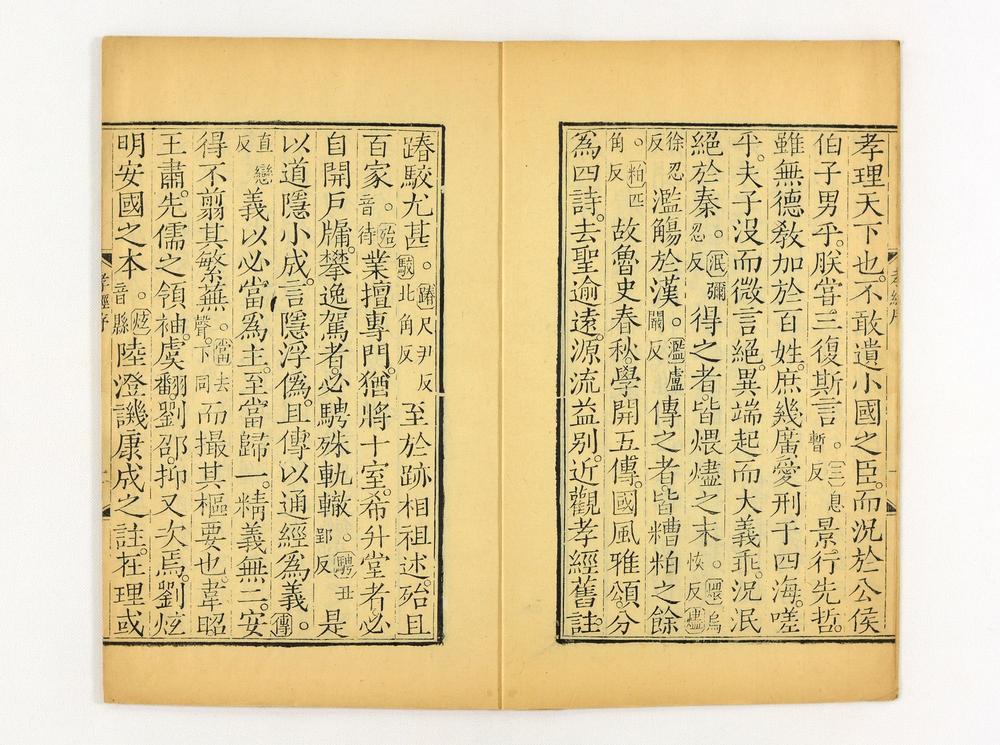 孝理天下也。不敢遺小國之臣。而況於公侯
伯子男乎。朕嘗三復斯言。㊂息暫反景行先哲。
雖無德敎加於百姓。庶幾廣愛刑于四海。嗟
乎。夫子沒而微言絕。異端起而大義乖。況泯
絕於秦。泯彌忍反得之者。皆煨燼之末。煨烏恢反燼
徐忍反濫觴於漢。濫盧闞反傳之者。皆糟粕之餘
。粕匹角反故魯史春秋。學開五傳。國風雅頌。分
爲四詩。去聖逾遠。源流益別。近觀孝經舊註。
踳駮尤甚。踳尺尹反駮北角反至於跡相祖述。殆且
百家。殆音待業擅專門。猶將十室。希升堂者。必
自開戶牖。攀逸駕者。必騁殊軌轍。騁丑郢反是
以道隱小成。言隱浮僞。且傳以通經爲義。傳
直戀反義以必當爲主。至當歸一。精義無二。安
得不翦其繁蕪。當去聲下同而撮其樞要也。韋昭
王肅。先儒之領袖。虞翻劉邵。抑又次焉。劉炫
明安國之本。炫音縣陸澄譏康成之註。在理或
孝經序